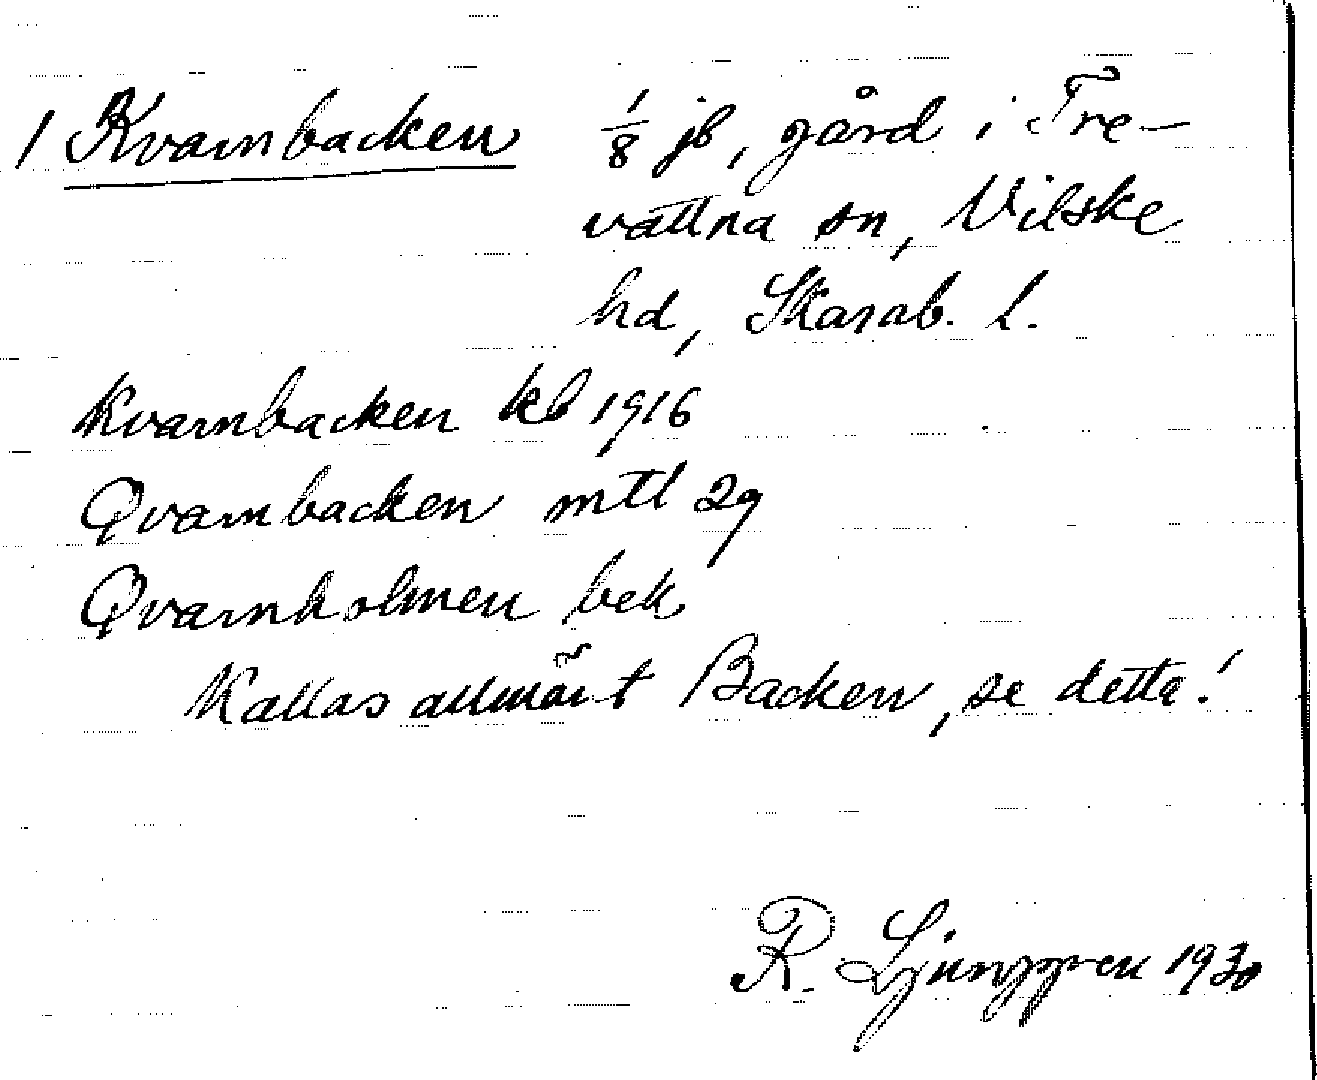 1 Kvarnbacken 1/8 jb, gård i Tre-
vattna sn, Vilske
hd, Skarab. l.
Kvarnbacken kb 1916
Qvarnbacken mtl 29
Qvarnholmen bek
Kallas allmänt Backen, se detta!
R. Ljunggren 1930